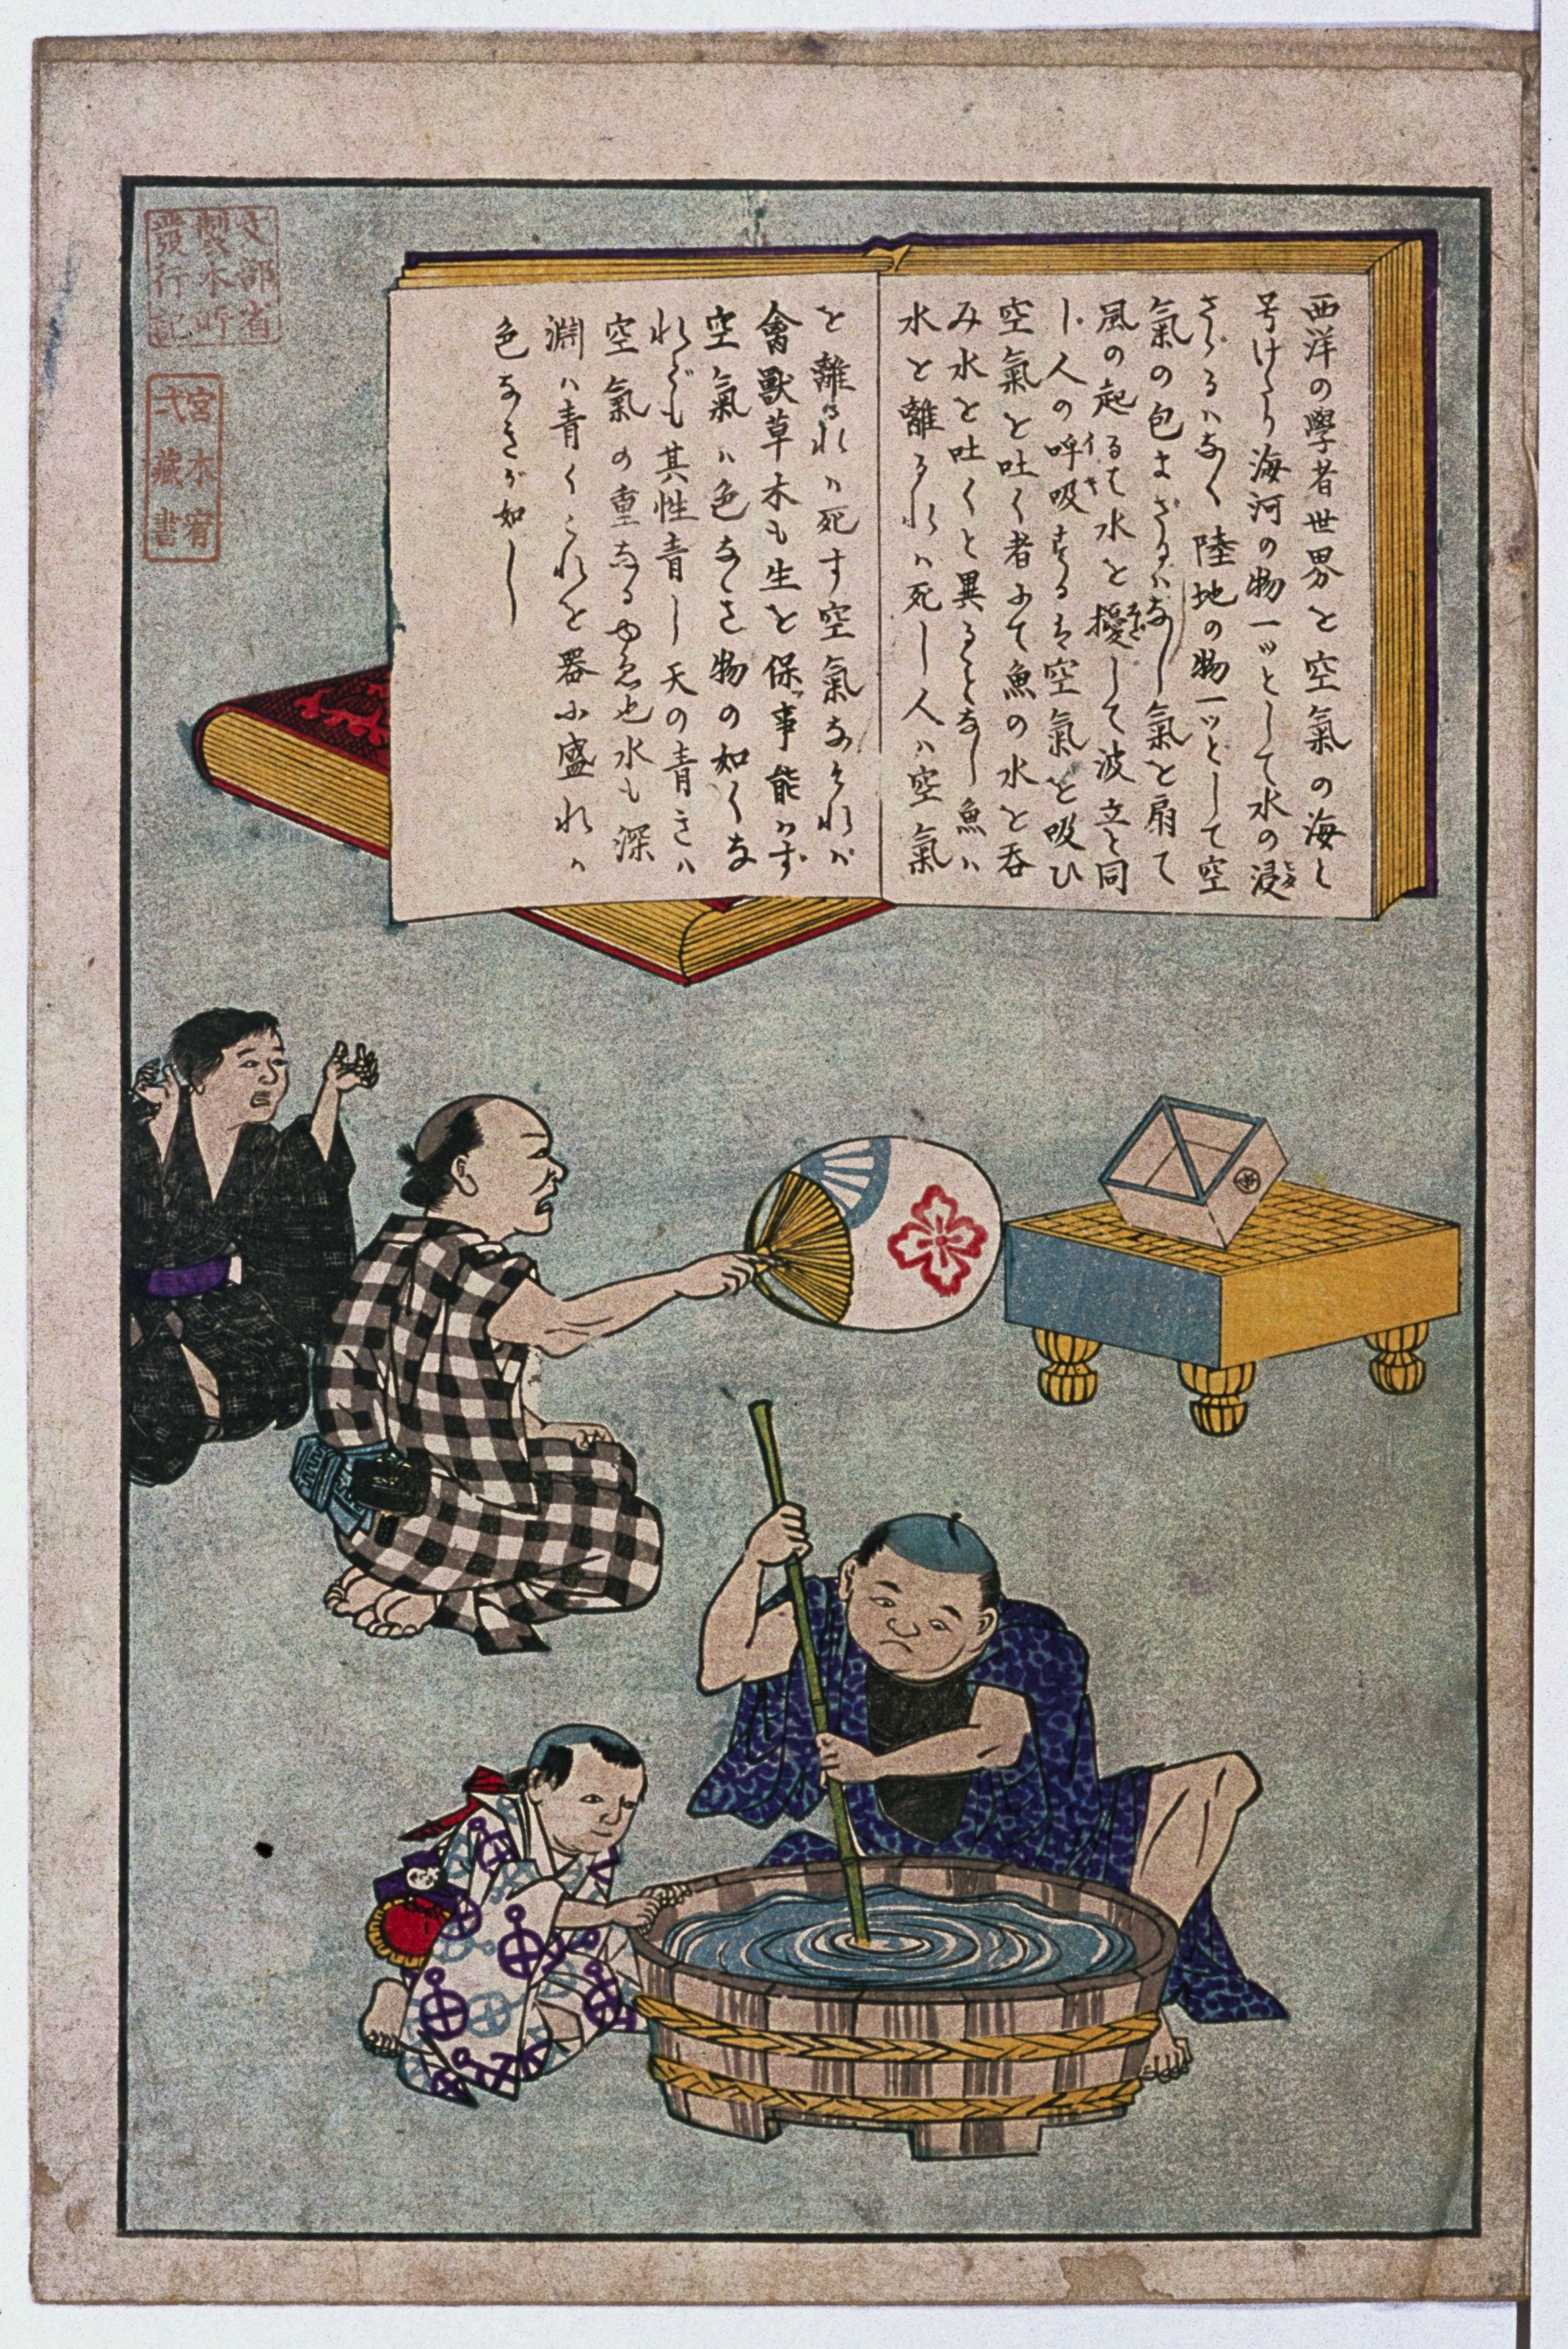 西洋の學者世界を空氣の海と
号けたり海河の物一ッとして水の浸
さゞるハなく陸地の物一ッとして空
氣の包まざるハなし氣を扇て
風の起るは水を擾して波立と同
じ人の呼吸するは空氣を吸ひ
空氣を吐く者にて魚の水を呑
み水を吐くと異ることなし魚ハ
水を離るれハ死し人ハ空氣
を離るれハ死す空氣なけれバ
禽獸草木も生を保事能ハず
空氣ハ色なき物の如くな
れども其性青し天の青きハ
空氣の重なるゆゑ也水も深
淵ハ青くこれを器に盛れハ
色なきが如し
文部省
製本所
發行記
宮本宥
弌藏書